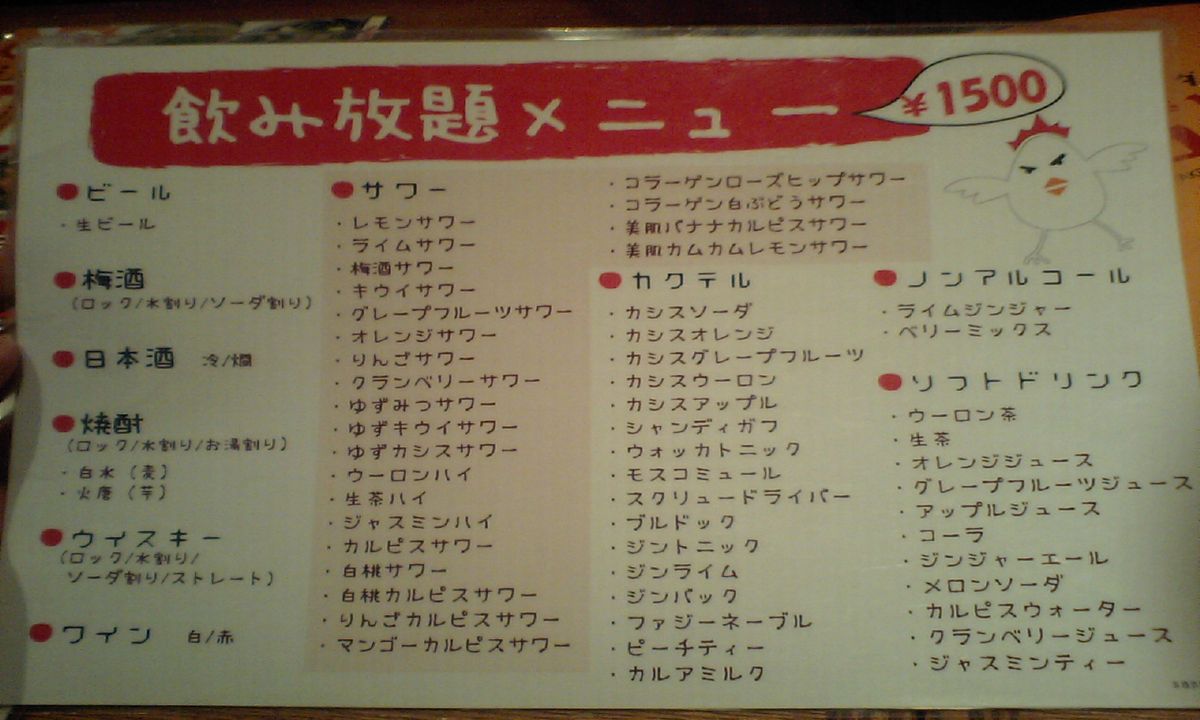 飲み放題メニュー
¥1500
ビール
・生ビール
梅酒
(ロック/水割り/ソーダ割り)
日本酒 冷/燗
焼酎
(ロック/水割り/お湯割り)
・白水(麦)
・火唐(芋)
ウイスキー
(ロック/水割り/
ソーダ割り/ストレート)
ワイン 白/赤
サワー
・レモンサワー
・ライムサワー
・梅酒サワー
・キウイサワー
・グレープフルーツサワー
・オレンジサワー
・りんごサワー
・クランベリーサワー
・ゆずみつサワー
・ゆずキウイサワー
・ゆずカシスサワー
・ウーロンハイ
・生茶ハイ
・ジャスミンハイ
・カルピスサワー
・白桃サワー
・白桃カルピスサワー
・りんごカルピスサワー
・マンゴーカルピスサワー
・コラーゲンローズヒップサワー
・コラーゲン白ぶどうサワー
・美肌バナナカルピスサワー
・美肌カムカムレモンサワー
カクテル
・カシスソーダ
・カシスオレンジ
・カシスグレープフルーツ
・カシスウーロン
・カシスアップル
・シャンディガフ
・ウォッカトニック
・モスコミュール
・スクリュードライバー
・ブルドック
・ジントニック
・ジンライム
・ジンバック
・ファジーネーブル
・ピーチティー
・カルアミルク
ノンアルコール
・ライムジンジャー
・ベリーミックス
ソフトドリンク
・ウーロン茶
・生茶
・オレンジジュース
・グレープフルーツジュース
・アップルジュース
・コーラ
・ジンジャーエール
・メロンソーダ
・カルピスウォーター
・クランベリージュース
・ジャスミンティー